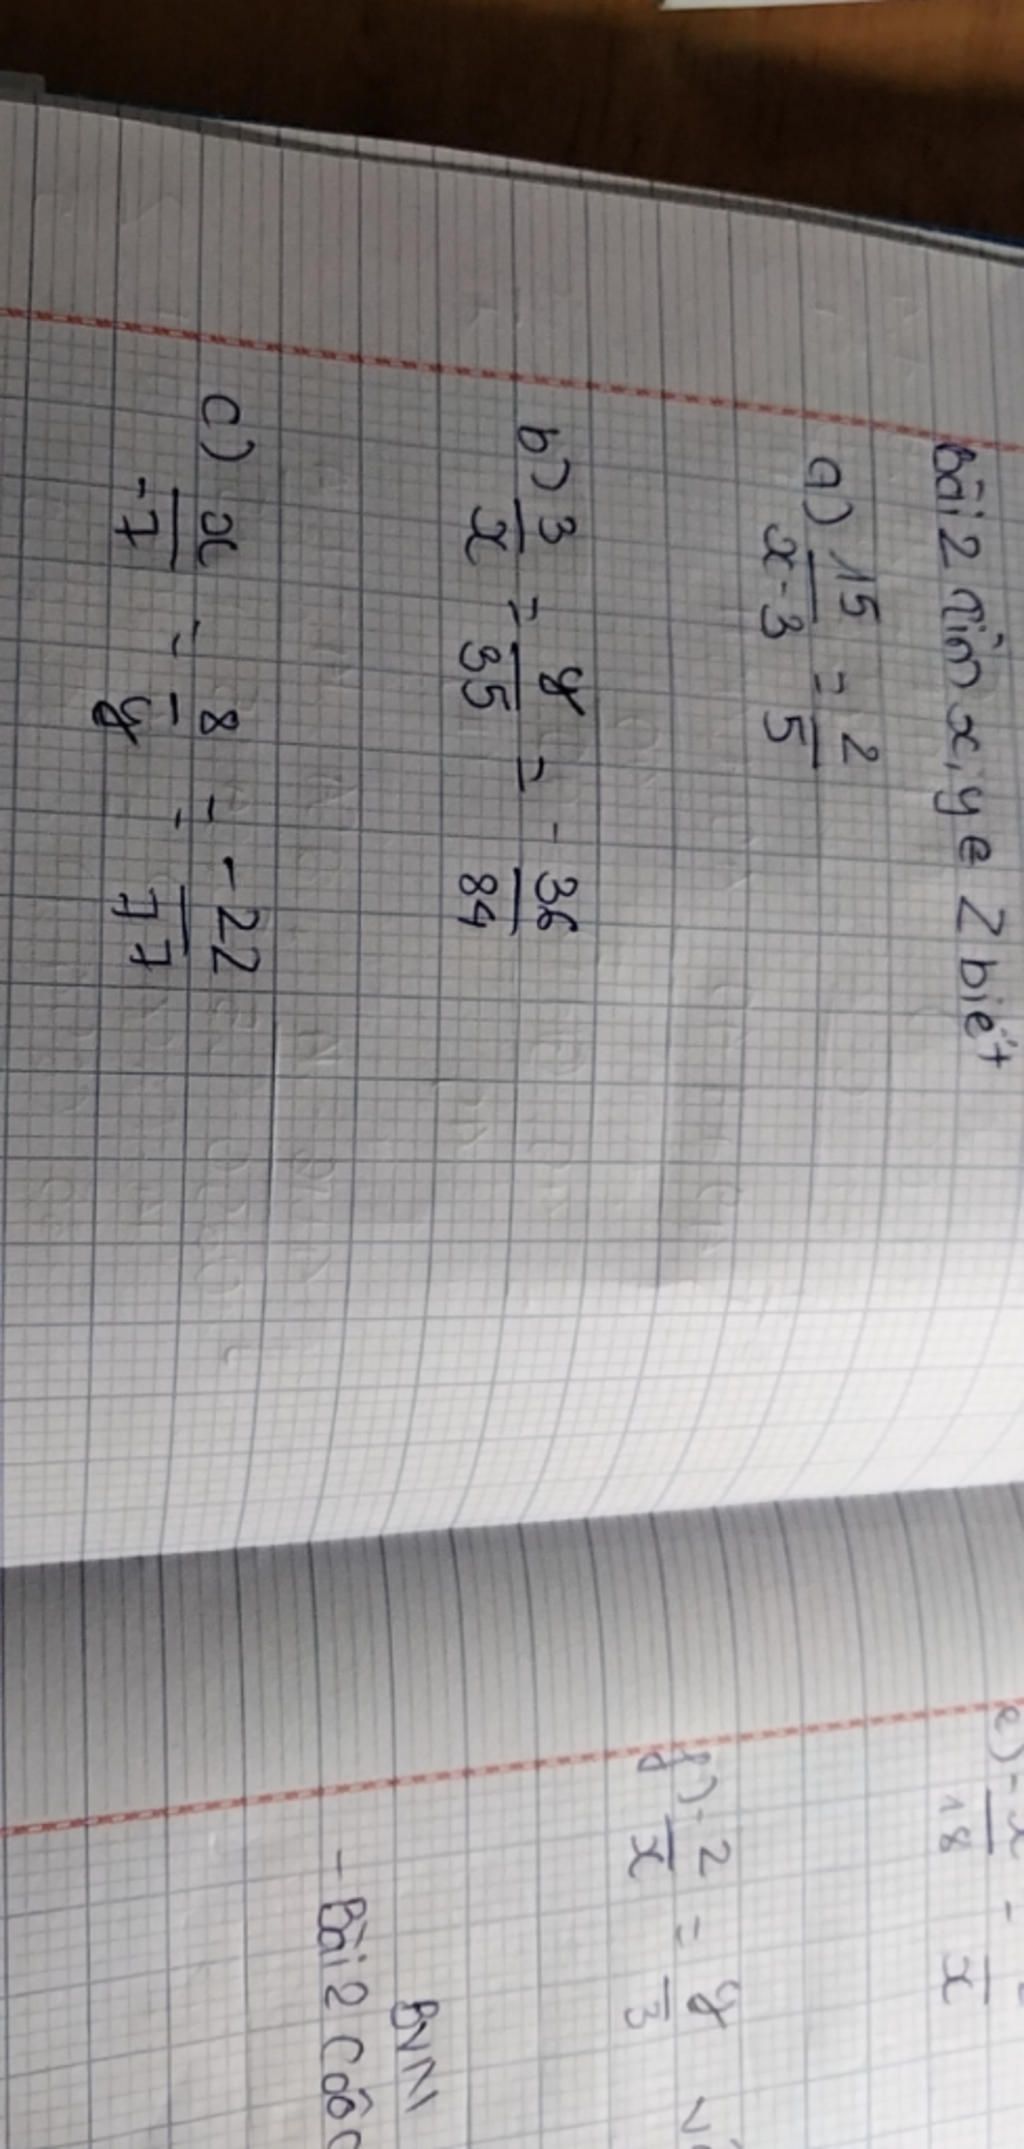 Bài 2 Tìm x, y e Z biết
a) 15/x-3 = 2/5
b) 3/x = y/35 = -36/84
c) x/-7 = 8/y = -22/77
e) -x/18 = /x
f) -2/x = y/3
BVN
- Bài 2 Các